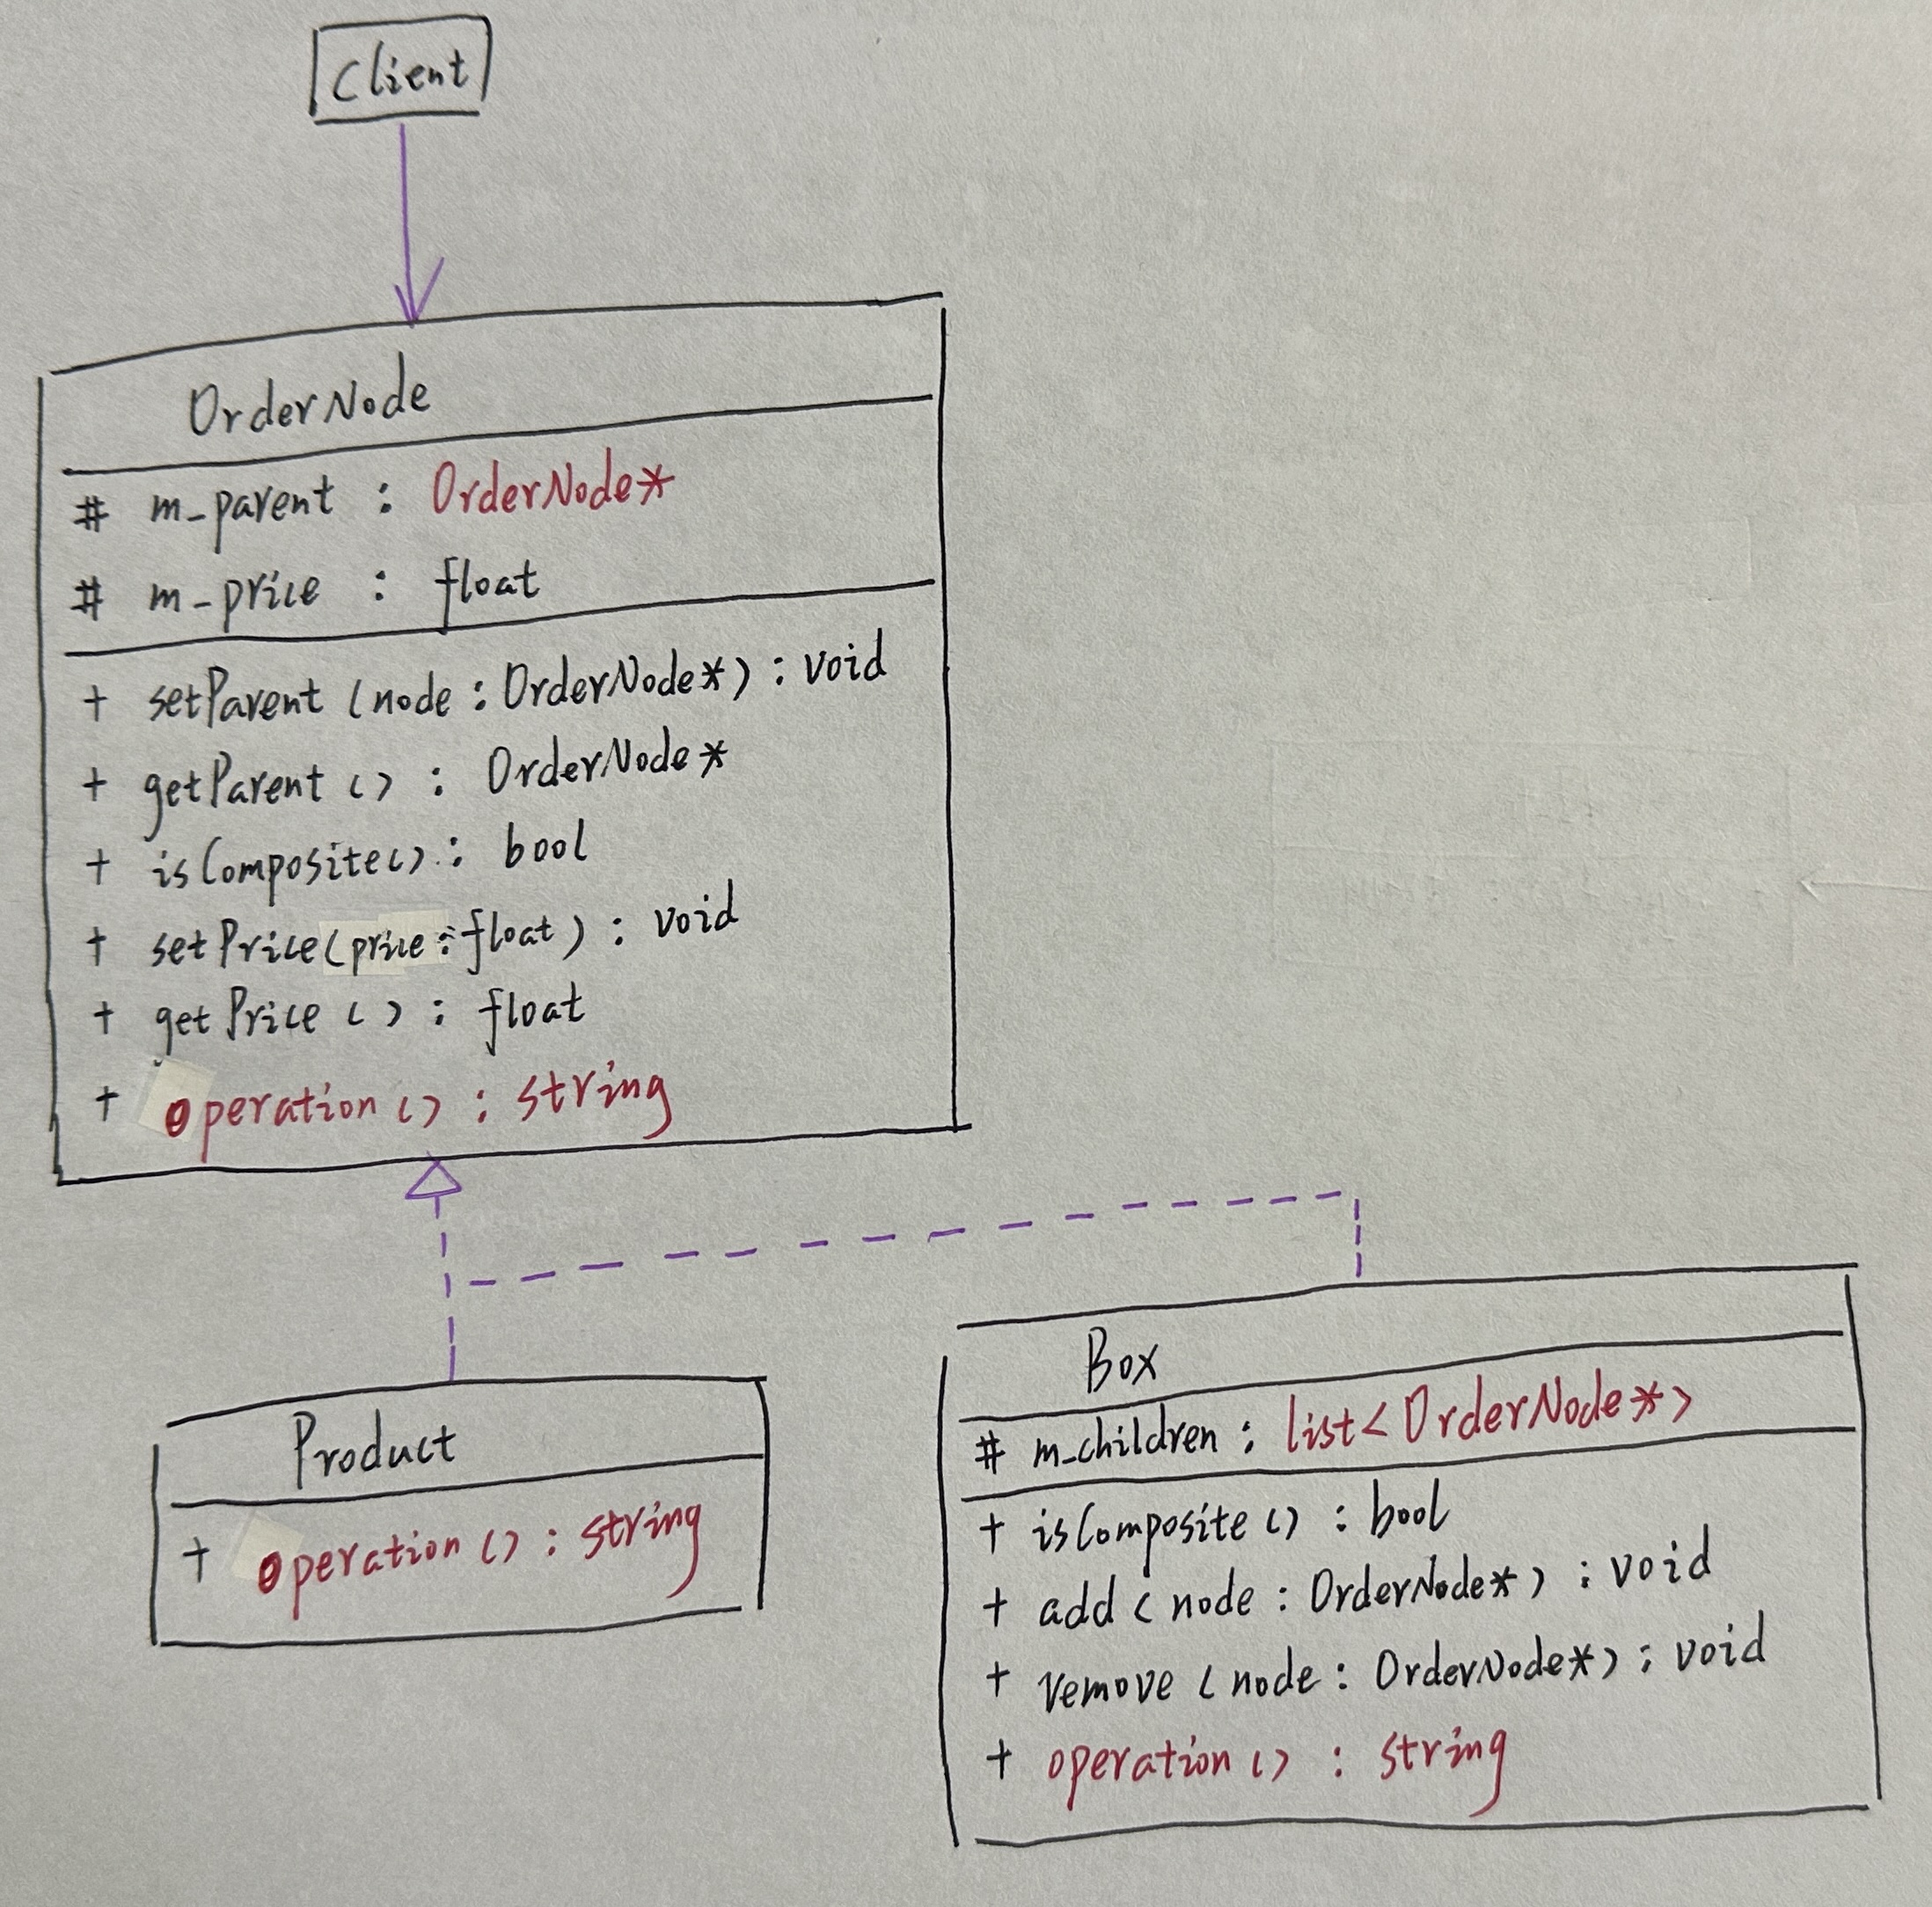 Client
OrderNode
# m_parent : OrderNode*
# m_price : float
+ setParent (node : OrderNode*) : void
+ getParent () : OrderNode*
+ isComposite() : bool
+ setPrice(price : float) : void
+ getPrice () : float
+ operation () : string
Product
+ operation () : string
Box
# m_children : list<OrderNode*>
+ isComposite () : bool
+ add (node : OrderNode*) : void
+ remove (node : OrderNode*) : void
+ operation () : string